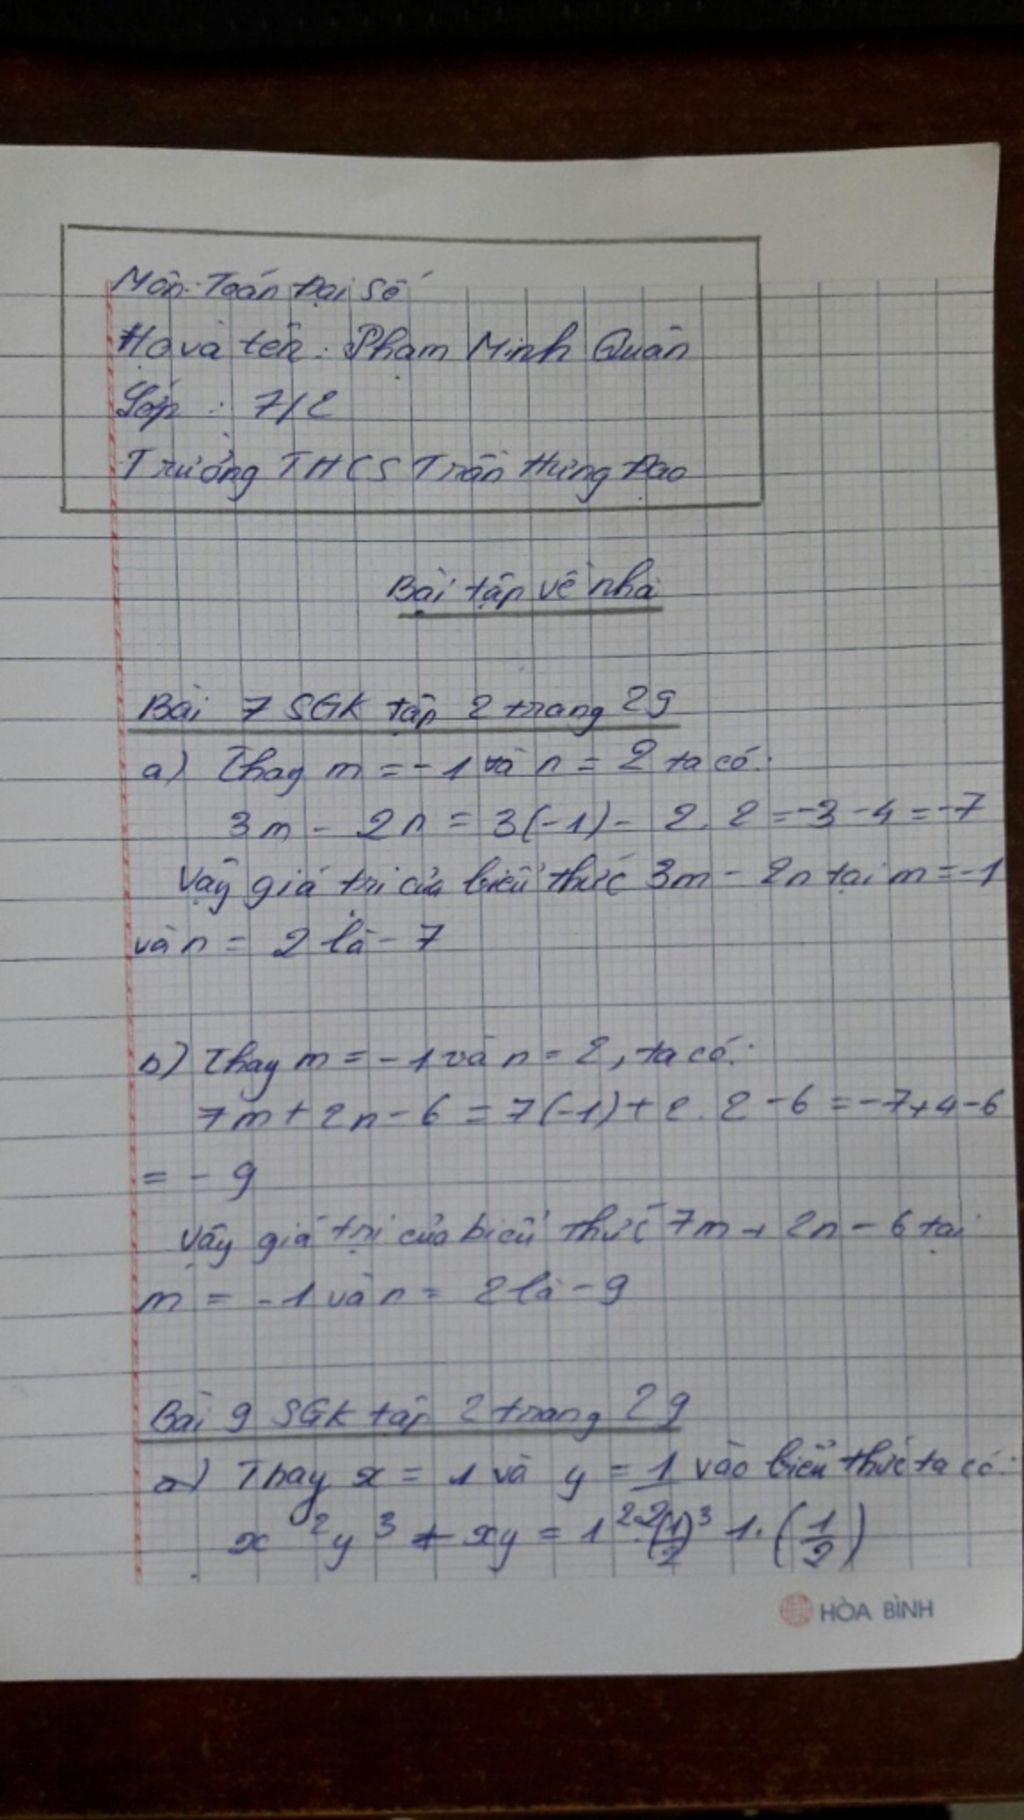 Môn: Toán Đại Số
Họ và tên: Phạm Minh Quân
Lớp: 7/2
Trường THCS Trần Hưng Đạo
Bài tập về nhà
Bài 7 SGK tập 2 trang 29
a) Thay m = -1 và n = 2 ta có:
3m - 2n = 3(-1) - 2.2 = -3 - 4 = -7
Vậy giá trị của biểu thức 3m - 2n tại m = -1
và n = 2 là -7
b) Thay m = -1 và n = 2, ta có:
7m + 2n - 6 = 7(-1) + 2.2 - 6 = -7 + 4 - 6
= -9
Vậy giá trị của biểu thức 7m + 2n - 6 tại
m = -1 và n = 2 là -9
Bài 9 SGK tập 2 trang 29
a) Thay x = 1 và y = 1 vào biểu thức ta có:
x²y³ + xy = 1² (1/2)³ 1. (1/2)
HÒA BÌNH